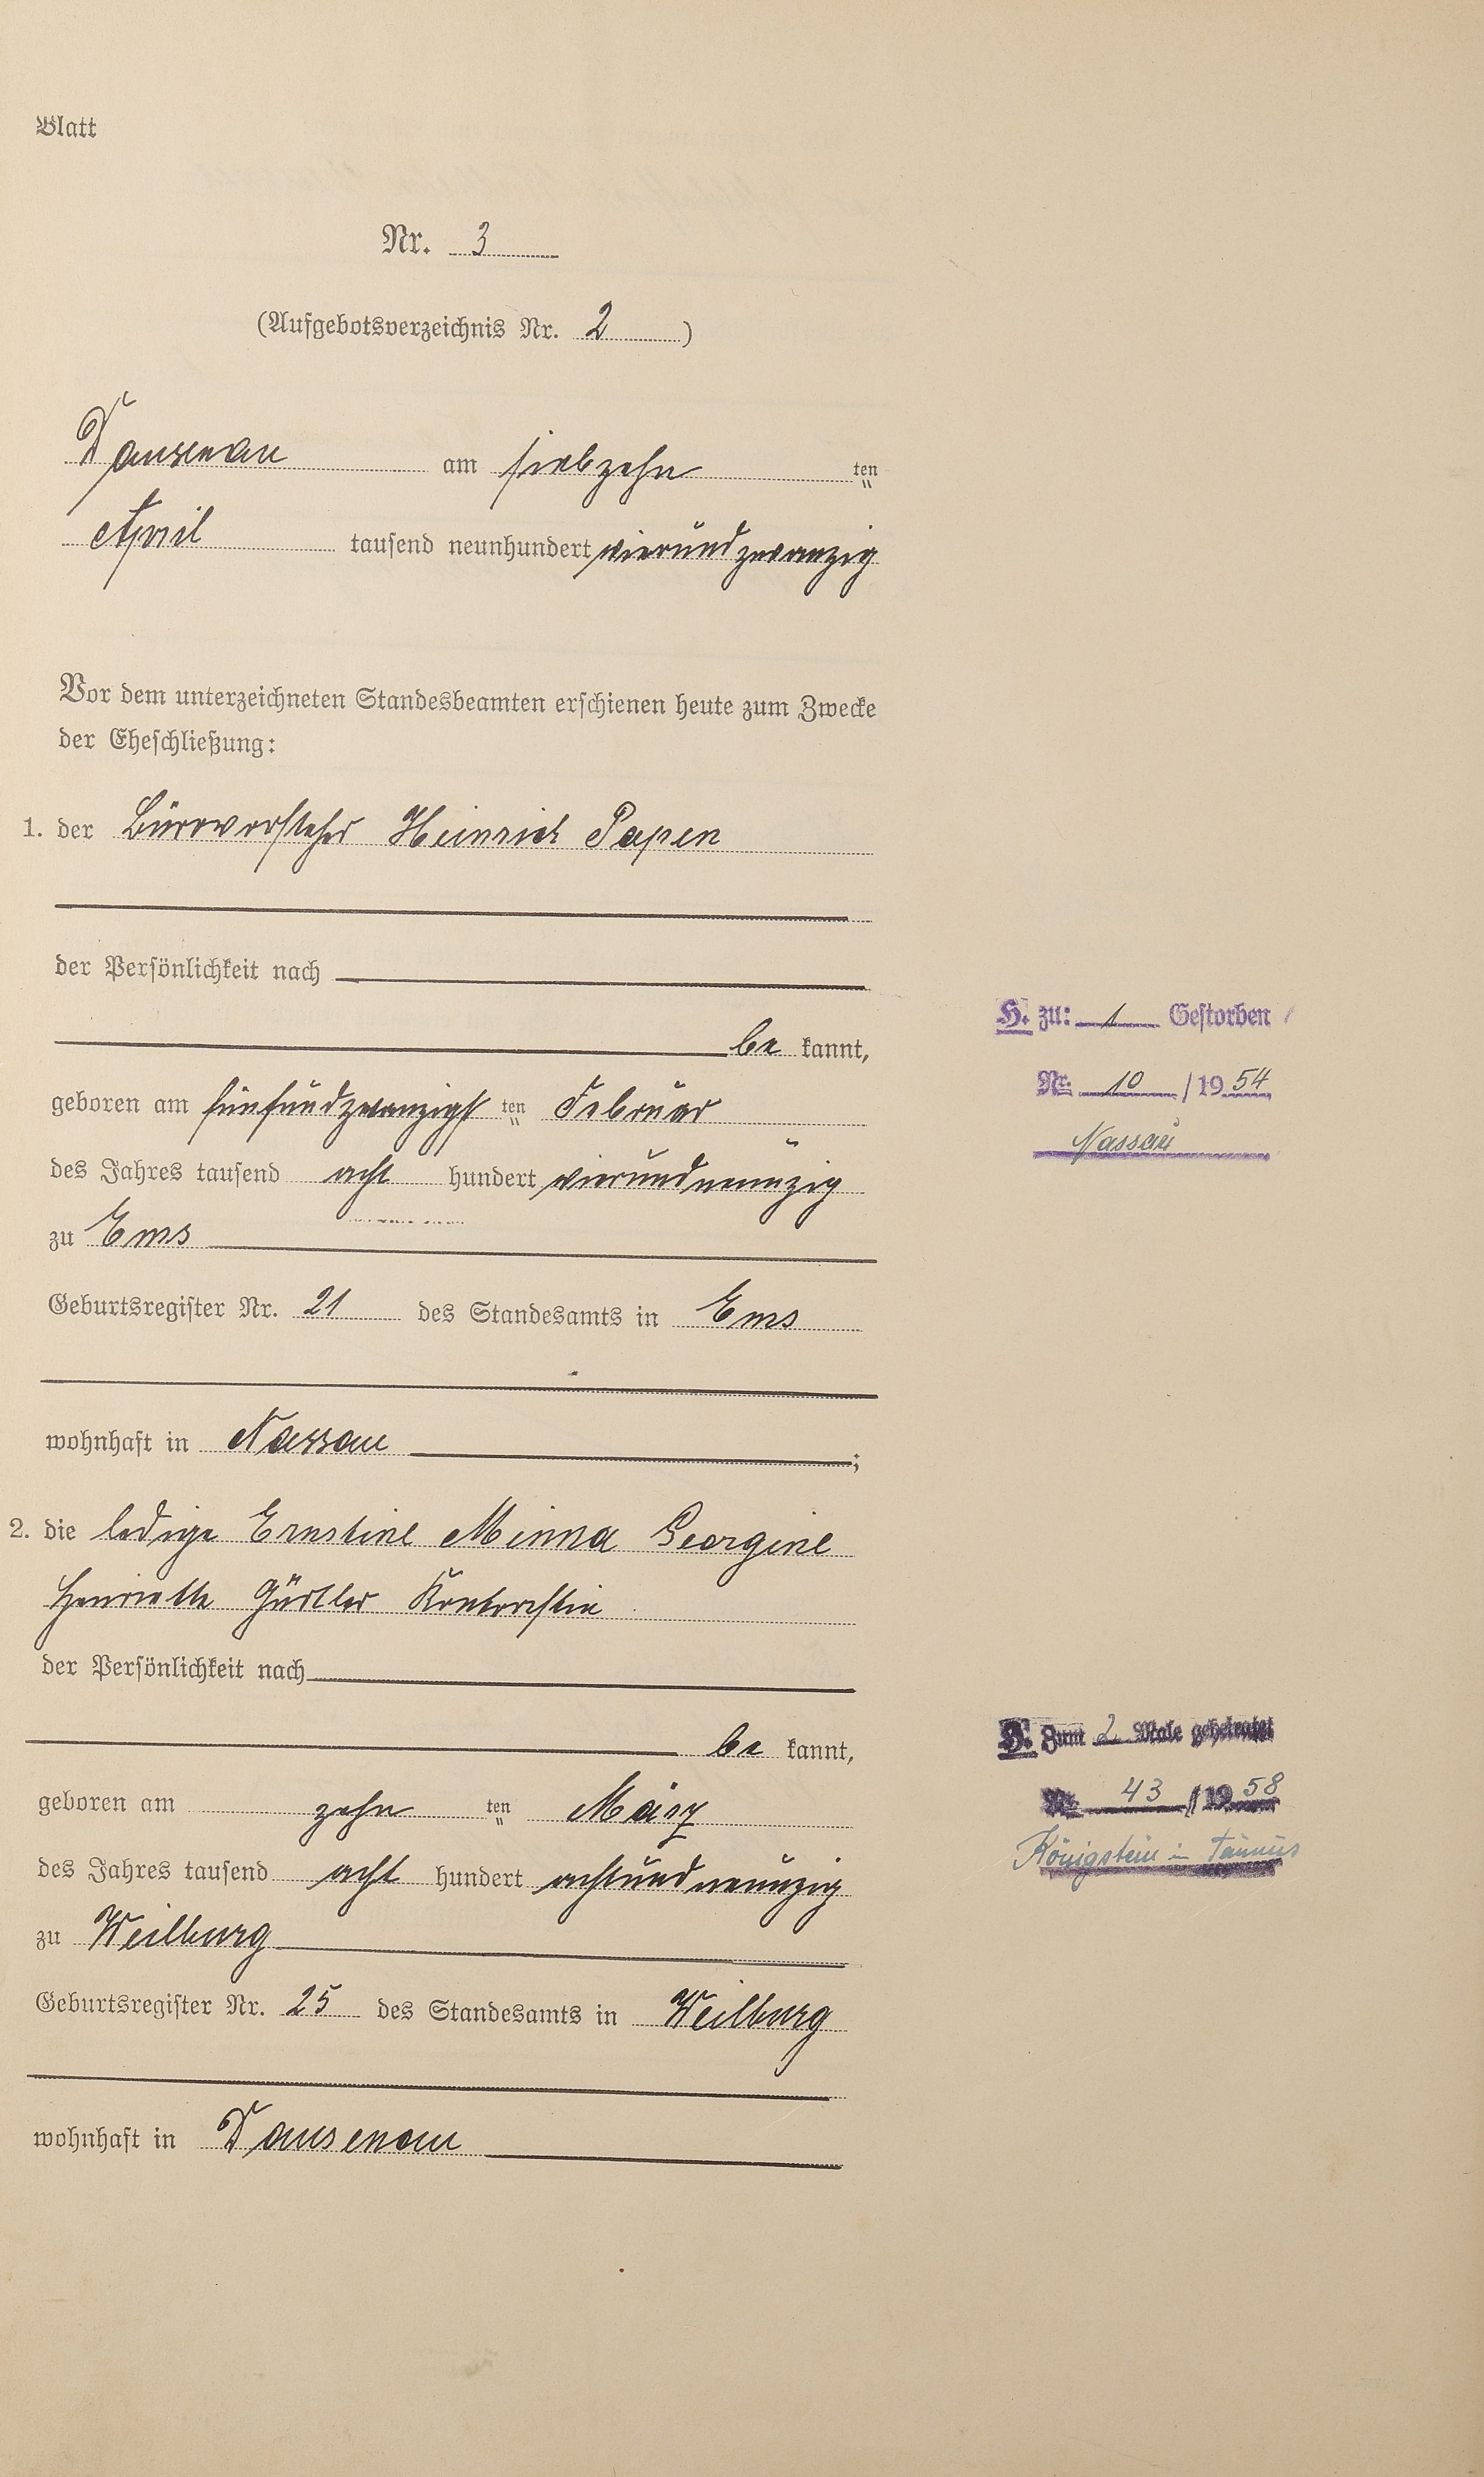 Blatt
Nr. 3
(Aufgebotsverzeichnis Nr. 2)
Dausenau am siebzehn ten
April tausend neunhundert vierundzwanzig
Vor dem unterzeichneten Standesbeamten erschienen heute zum Zwecke
der Eheschließung:
1. der Bürovorsteher Heinrich Papen
der Persönlichkeit nach
be kannt,
geboren am fünfundzwanzigst ten Februar
des Jahres tausend acht hundert vierundneunzig
zu Ems
Geburtsregister Nr. 21 des Standesamts in Ems
wohnhaft in Nassau ;
2. die ledige Ernstine Minna Georgine
Henriette Gürtler Kontoristin
der Persönlichkeit nach
be kannt,
geboren am zehn ten März
des Jahres tausend acht hundert achtundneunzig
zu Weilburg
Geburtsregister Nr. 25 des Standesamts in Weilburg
wohnhaft in Dausenau
H. zu: 1 Gestorben
Nr. 10 /1954
Nassau
H. Zum 2 Male geheiratet
Nr. 43 /1958
Königstein in Taunus